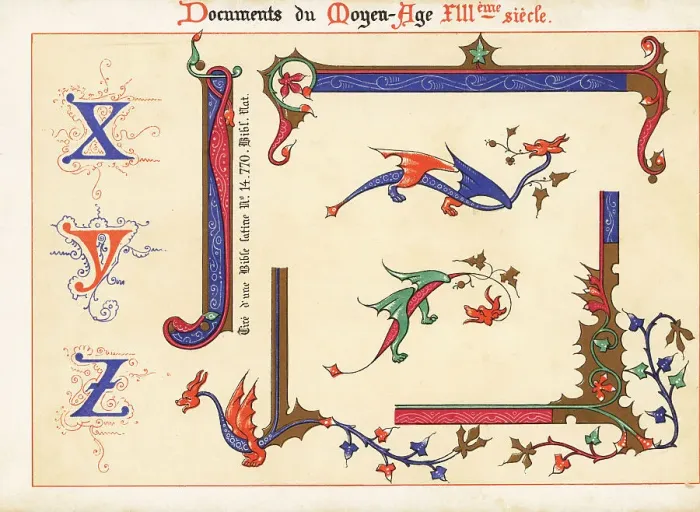 Documents du Moyen-Age XIIIème siècle.
x
y
z
Tiré d'une Bible latine Nº 14.770. Bibl. Nat.